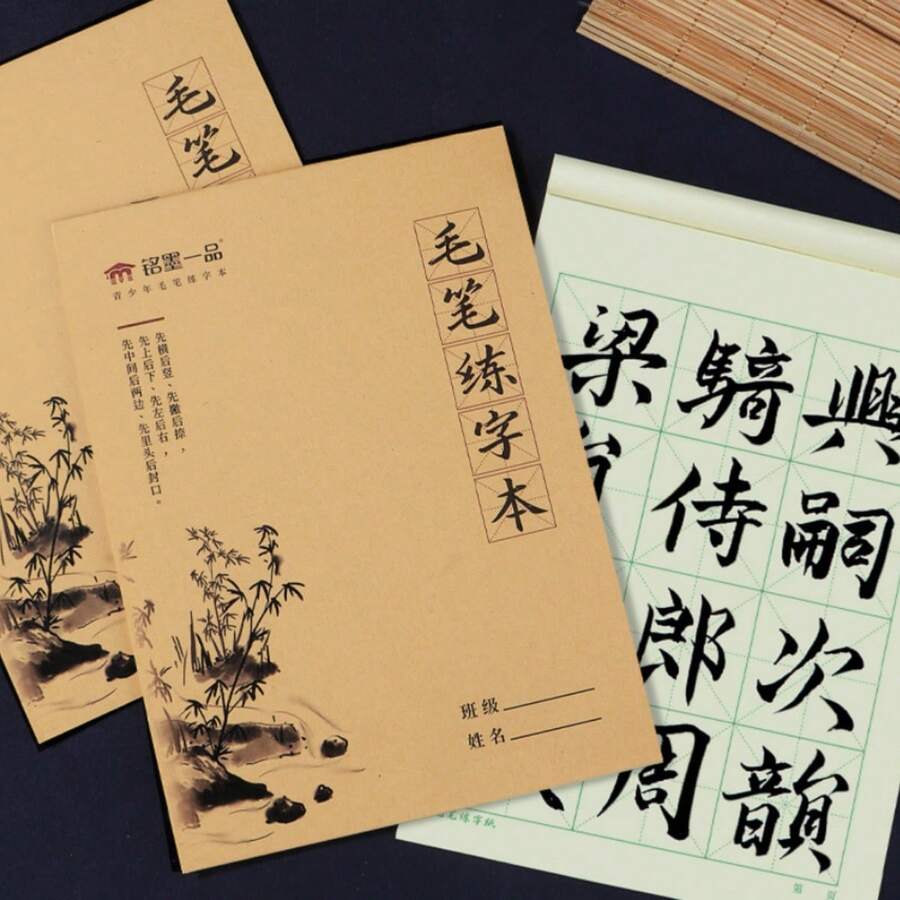 毛笔
铭墨一品
青少年毛笔练字本
先横后竖、先撇后捺，
先上后下、先左后右，
先中间后两边、先里头后封口。
毛笔练字本
班级
姓名
梁
騎侍郎周
興嗣次韻
笔练字纸
第 页